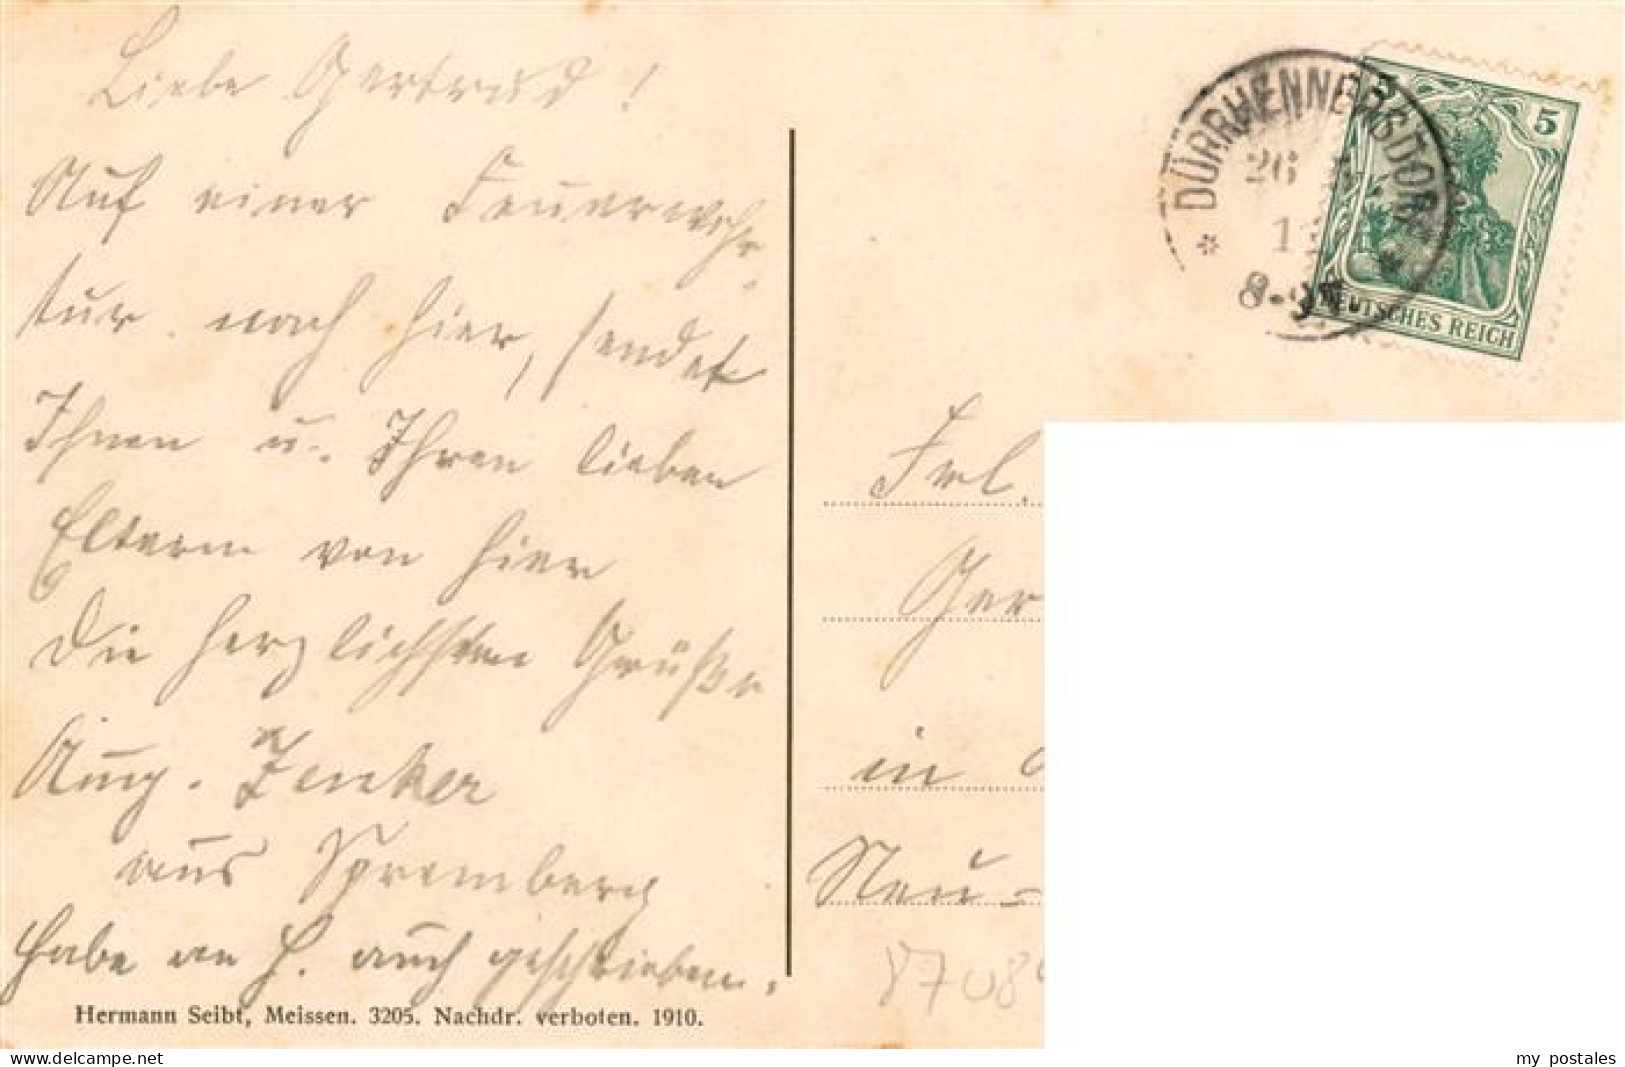 Liebe Gertrud!
Auf einer Feuerwehr-
tur nach hier, sendet
Ihnen u. Ihren lieben
Eltern von hier
die herzlichsten Grüße
Aug. Zenker
aus Spremberg
Habe an H. auch geschrieben.
Hermann Seibt, Meissen. 3205. Nachdr. verboten. 1910.
DÜRRHENNERSDORF
26
11
8-9
5
DEUTSCHES REICH
Frl.
Ger
in
Neu-
8708
delcampe.net
my postales